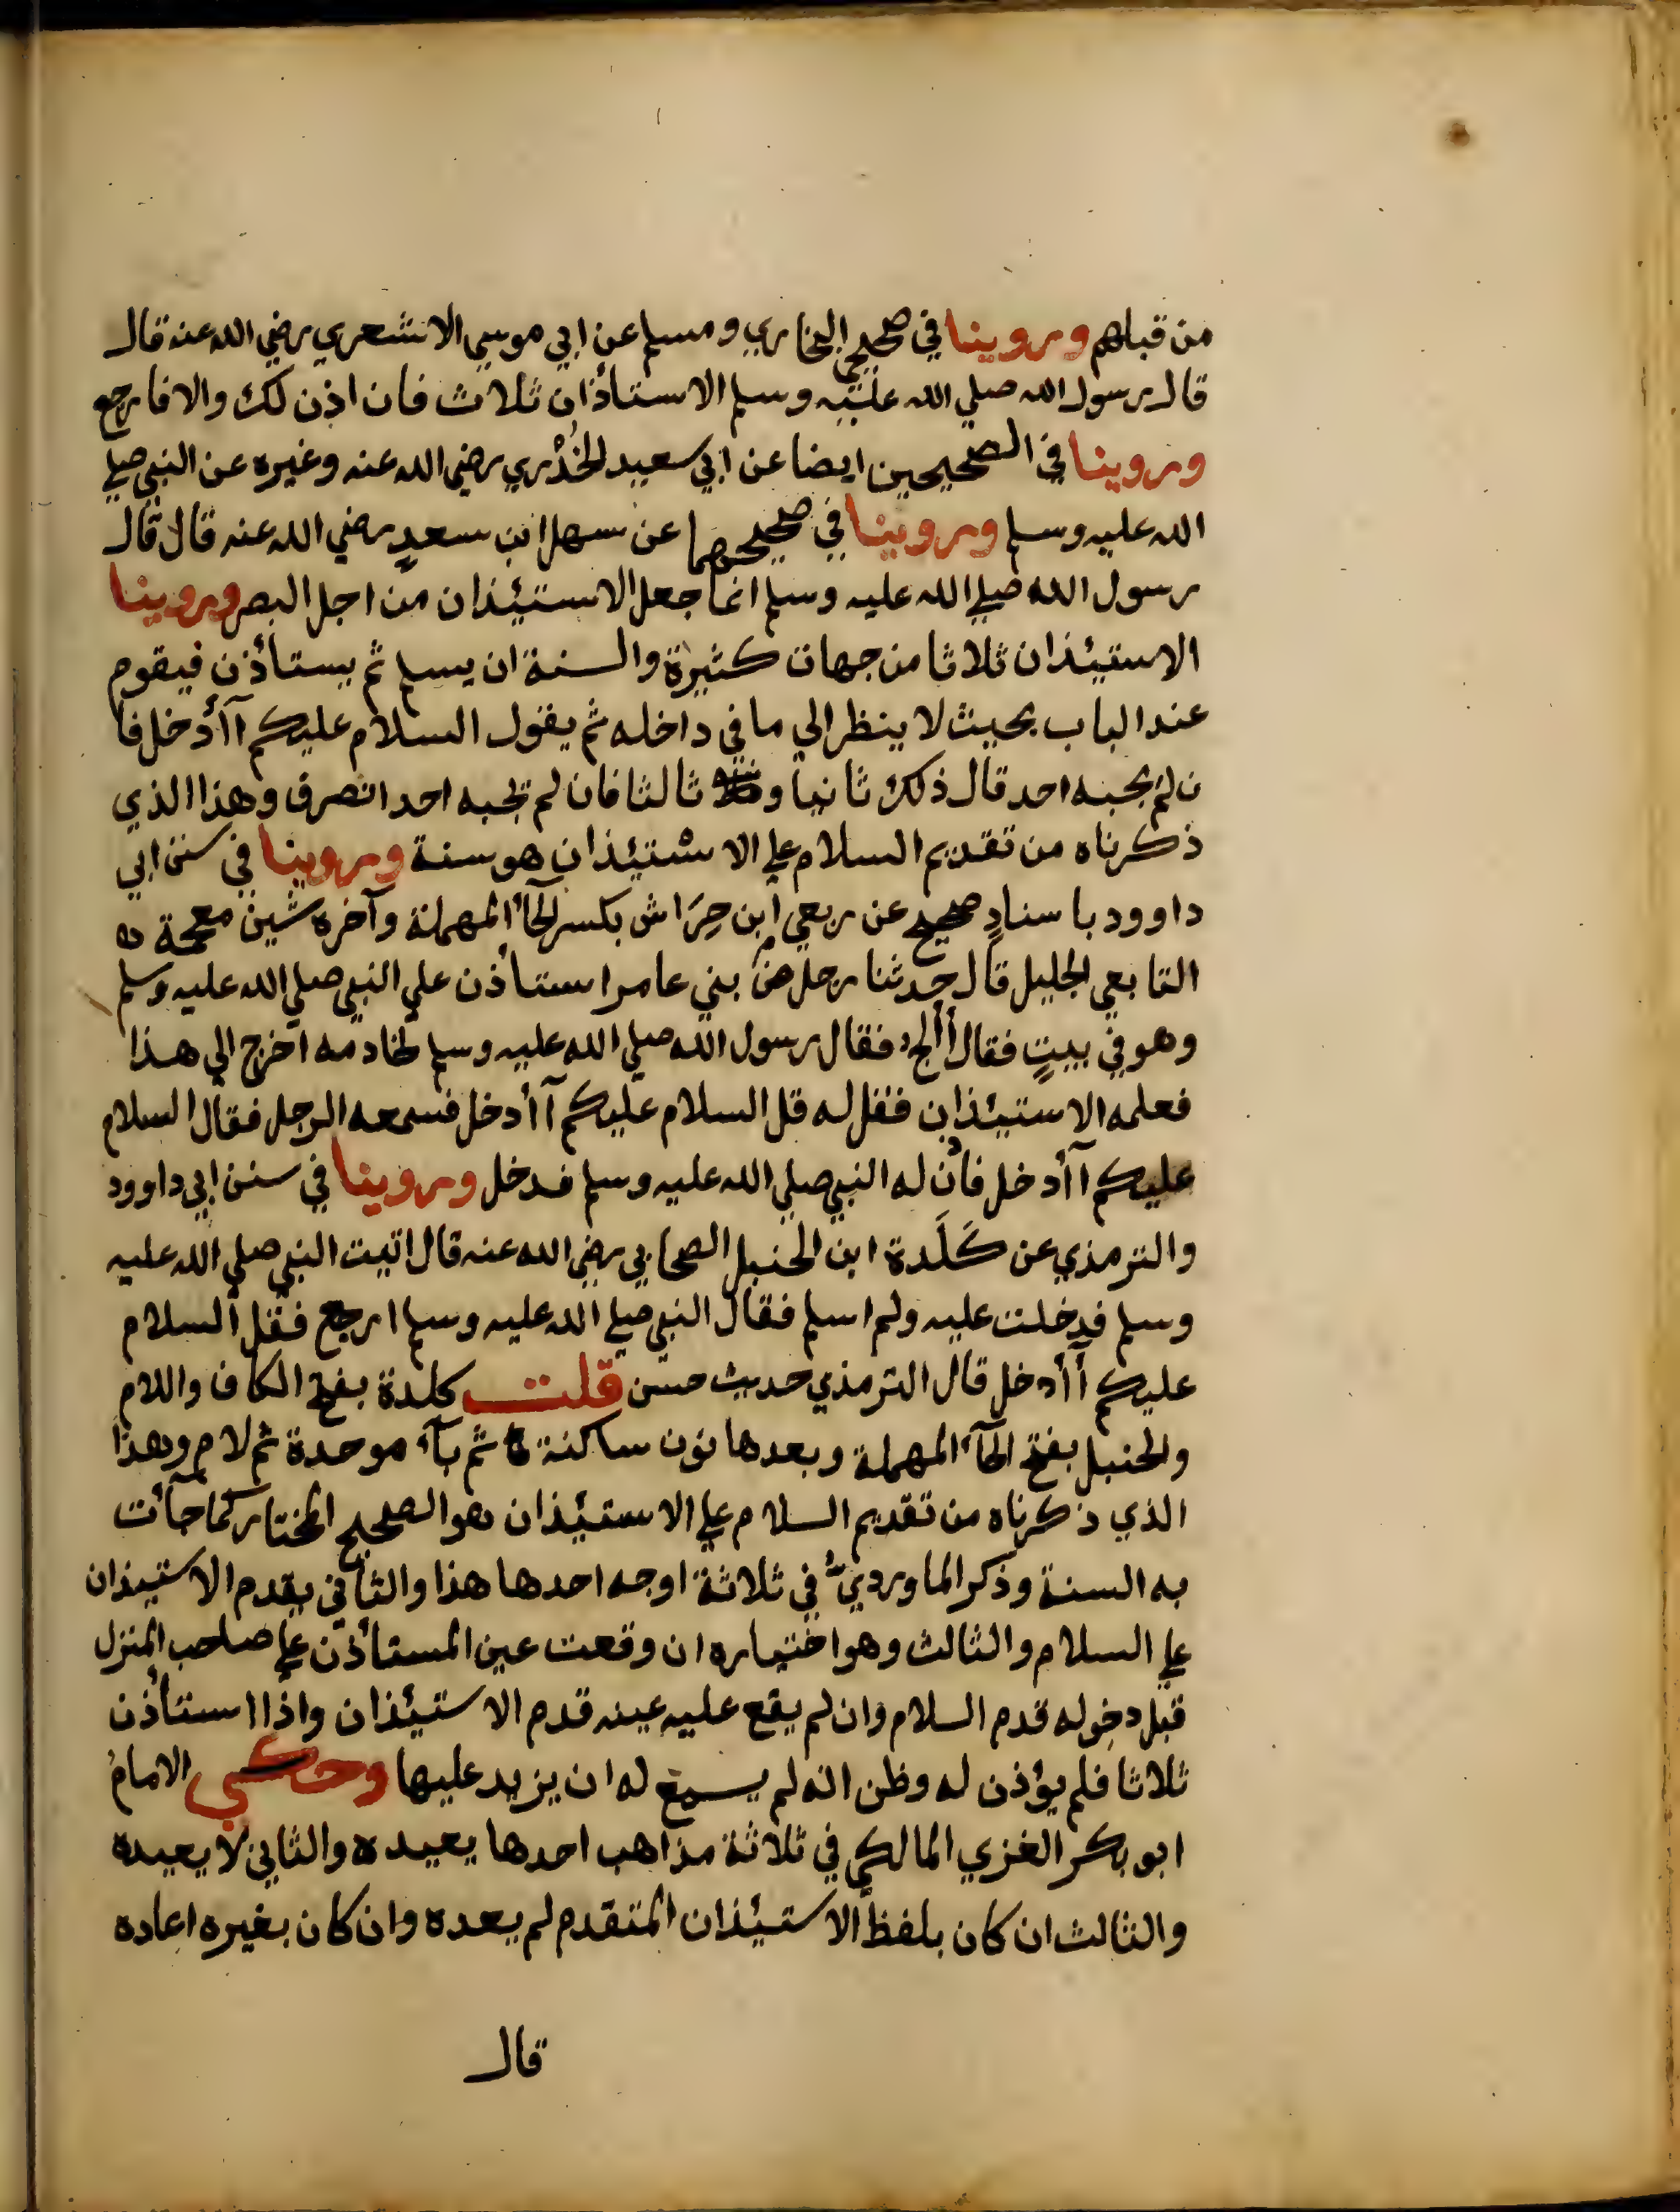 من قبلهم وروينا في صحيحي البخاري ومسلم عن ابي موسي الاشعري رضي الله عنه قال
قال رسول الله صلي الله عليه وسلم الاستأذان ثلاث فان اذن لك والا فارجع
وروينا في الصحيحين ايضا عن ابي سعيد الخُدْري رضي الله عنه وغيره عن النبي صلي
الله عليه وسلم وروينا في صحيحهما عن سهل ابن سعدٍ رضي الله عنه قال قال
رسول الله صلي الله عليه وسلم انما جعل الاستيئذان من اجل البصر وروينا
الاستيئذان ثلاثا من جهات كثيرة والسنة ان يسلم ثم يستأذن فيقوم
عند الباب بحيث لا ينظر الي ما في داخله ثم يقول السلام عليكم آأدخل فا
ن لم يجبه احد قال ذلك ثانيا و ثالثا فان لم يجبه احد انصرف وهذا الذي
ذكرناه من تقديم السلام علي الاستيئذان هو سنة وروينا في سنن ابي
داوود باسنادٍ صحيح عن ربعي ابن حِرَاش بكسر الحآء المهملة وآخره شين معجمة
التابعي الجليل قال حدثنا رجل من بني عامر استأذن علي النبي صلي الله عليه وسلم
وهو في بيتٍ فقال أألج فقال رسول الله صلي الله عليه وسلم لخادمه اخرج الي هذا
فعلمه الاستيئذان فقل له قل السلام عليكم آأدخل فسمعه الرجل فقال السلام
عليكم آأدخل فأذن له النبي صلي الله عليه وسلم فدخل وروينا في سنن ابي داوود
والترمذي عن كَلَدة ابن الحنبل الصحابي رضي الله عنه قال اتيت النبي صلي الله عليه
وسلم فدخلت عليه ولم اسلم فقال النبي صلي الله عليه وسلم ارجع فقل السلام
عليكم أأدخل قال الترمذي حديث حسن قلت كلدة بفتح الكاف واللام
والحنبل بفتح الحآء المهملة وبعدها نون ساكنة ثم بآء موحدة ثم لام وهذا
الذي ذكرناه من تقديم السلام علي الاستيئذان هو الصحيح المختار كما جآأت
به السنة وذكر الماورديُّ في ثلاثة اوجه احدها هذا والثاني يقدم الاستيئذان
علي السلام والثالث وهو اختياره ان وقعت عين المستأذن علي صاحب المنزل
قبل دخوله قدم السلام وان لم يقع عليه عينه قدم الاستيئذان واذا استأذن
ثلاثا فلم يؤذن له وظن انه لم يسمع له ان يزيد عليها وحكي الامام
ابو بكر الغزي المالكي في ثلاثة مذاهب احدها يعيده والثاني لا يعيده
والثالث ان كان بلفظ الاستيئذان المتقدم لم يعده وان كان بغيره اعاده
قال